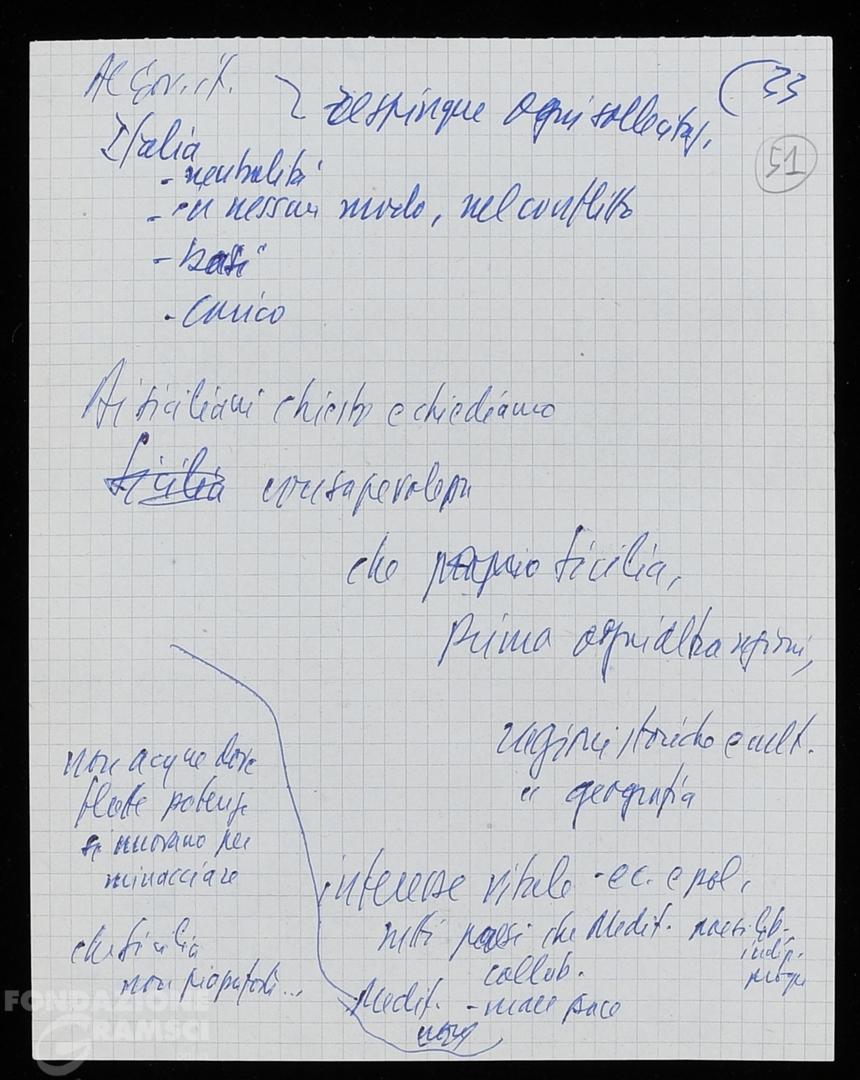 Al Gov. it.
respinque ogni sollecitaz.
33
51
Italia
- neutralità
- in nessun modo, nel conflitto
- basi
- carico
Ai siciliani chiesto e chiediamo
Sicilia consapevolezza
che proprio Sicilia,
prima ogni altra regioni,
ragioni storiche e cult.
e geografia
non acque dove
flotte potenze
si muovano per
minacciare
interesse vitale - ec. e pol.
tutti paesi che Medit.
collab.
indip.
che Sicilia
non
Medit. - mare pace
FONDAZIONE
GRAMSCI